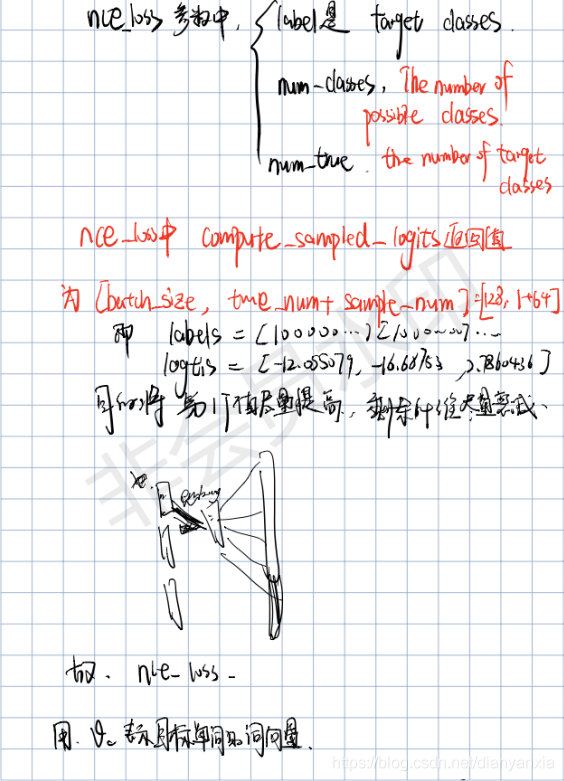 nce_loss 参数中, label是 target classes.
num-classes, The number of
possible classes.
num_true. the number of target
classes
nce_loss中 compute_sampled_logits返回值
为 [batch_size, true_num + sample_num]=[128, 1+64]
而 labels = [100000...][1000000]...
logtis = [-12.055079, -16.68753, 2.7860436]
可以将 第1个值尽量提高, 剩余64维尽量
embedding
故. nce_loss
用 表示目标单词的词向量.
非会员水印
https://blog.csdn.net/dianyanxia